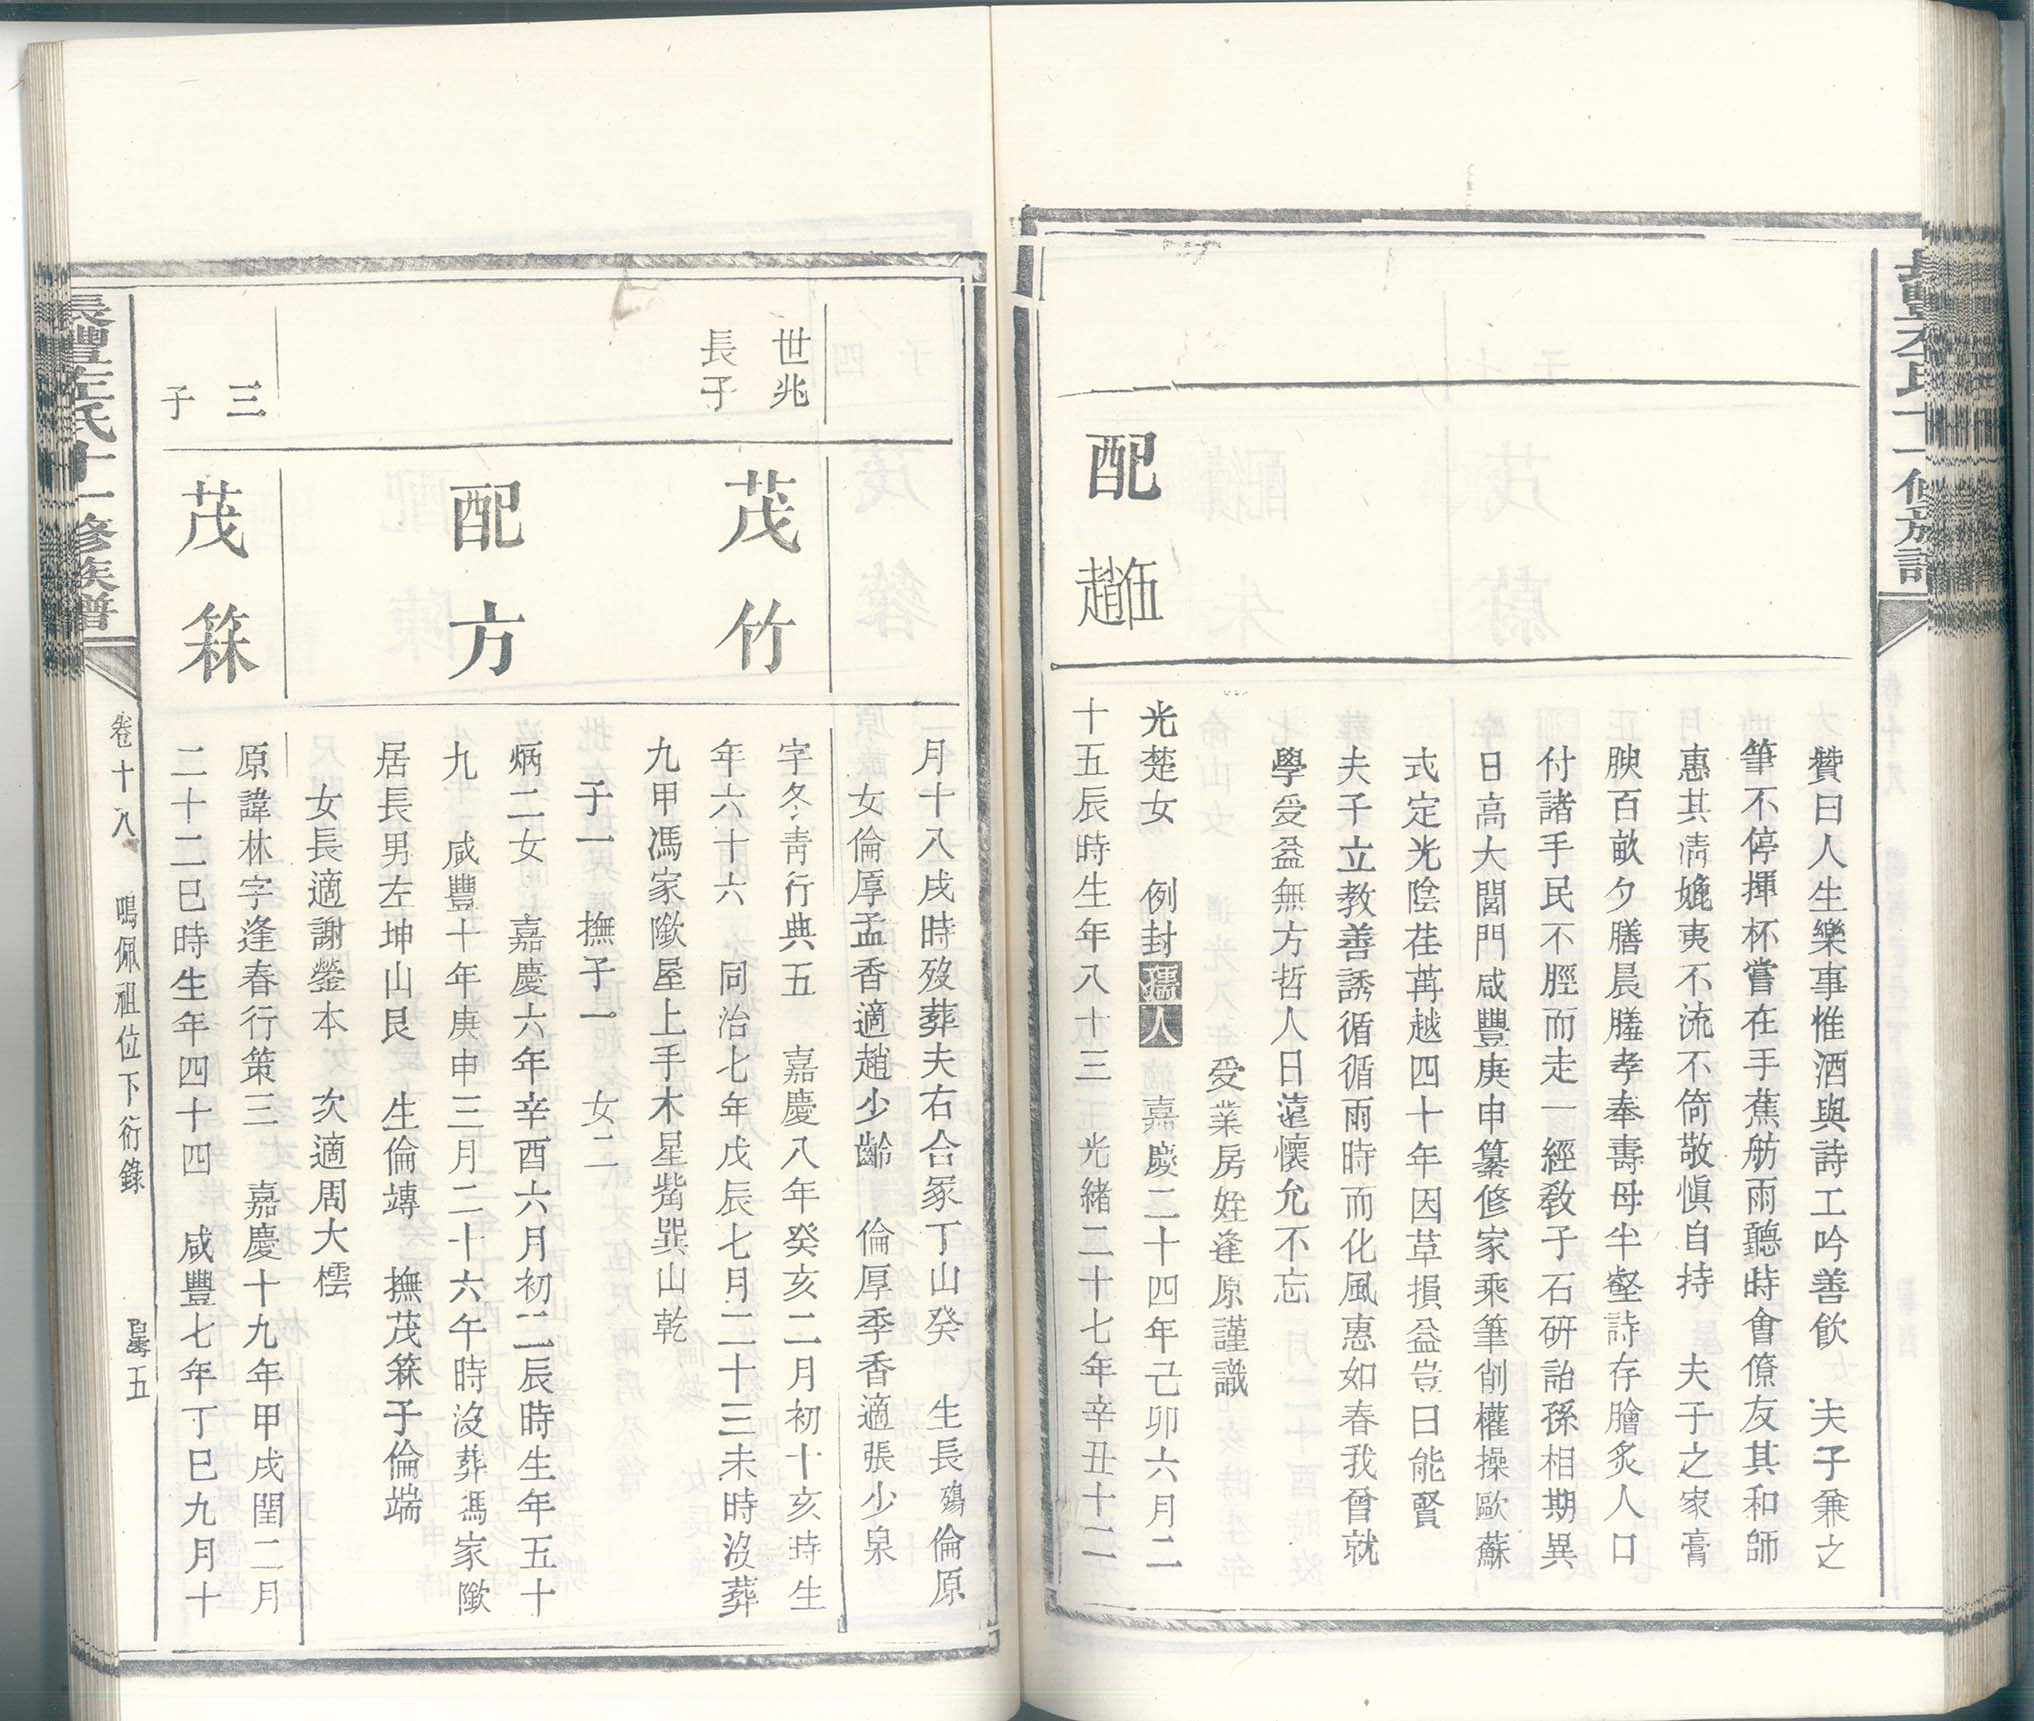 贊曰人生樂事惟酒與詩工吟善飲　夫子兼之
筆不停揮杯嘗在手蕉舫雨聽時會僚友其和師
惠其清媲夷不流不倚敬慎自持　夫子之家膏
腴百畝夕膳晨膳孝奉壽母半壑詩存膾炙人口
付諸手民不脛而走一經教子石研詒孫相期異
日高大閭門咸豐庚申纂修家乘筆削權操歐蘇
式定光陰荏苒越四十年因草損益豈曰能賢
夫子立教善誘循循雨時而化風惠如春我曾就
學受益無方哲人日遠懷允不忘
受業房姪逢原謹識
配伍趙
光楚女　例封孺人　嘉慶二十四年己卯六月二
十五辰時生年八十三　光緒二十七年辛丑十二
月十八戌時歿葬夫右合冢丁山癸　生長殤倫原
女倫厚孟香適趙少齡　倫厚季香適張少泉
世兆
長子
茂竹
字冬青行典五　嘉慶八年癸亥二月初十亥時生
年六十六　同治七年戊辰七月二十三未時沒葬
九甲馮家隞屋上手木星嘴巽山乾
子一　撫子一　女二
配方
炳二女　嘉慶六年辛酉六月初二辰時生年五十
九　咸豐十年庚申三月二十六午時沒葬馮家隞
居長男左坤山艮　生倫竱　撫茂箖子倫端
女長適謝鎣本　次適周大橒
三
子
茂箖
原諱林字逢春行策三　嘉慶十九年甲戌閏二月
二十二巳時生年四十四　咸豐七年丁巳九月十
長豐左氏十一修族譜
卷十八　鳴佩祖位下衍錄　五